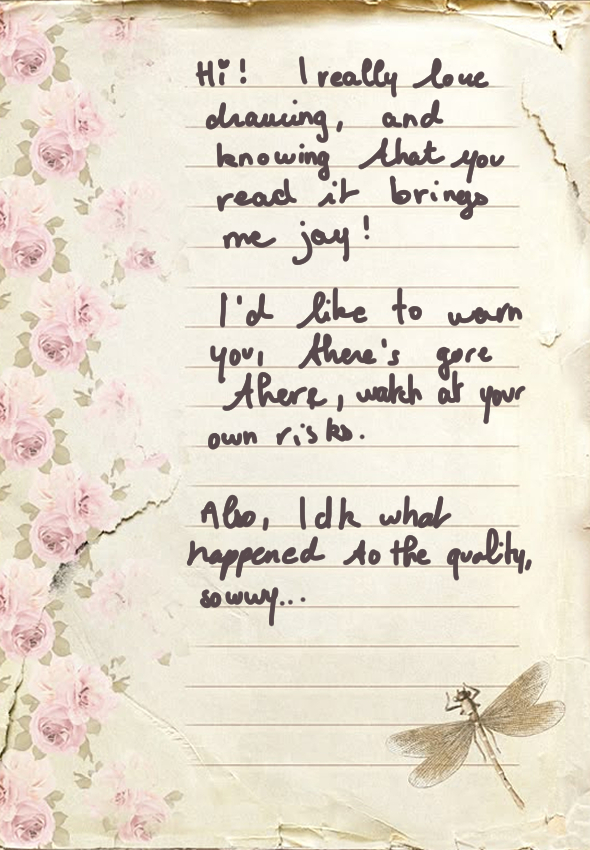 Hi! I really love
drawing, and
knowing that you
read it brings
me joy!
I'd like to warn
you, there's gore
there, watch at your
own risks.
Also, Idk what
happened to the quality,
sowwy...